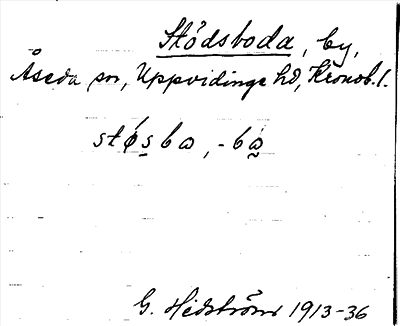 Stödsboda, by,
Åseda sn, Uppvidinge hd, Kronob. l.
stø̀sba, -bà̰
G. Hedström 1913-36